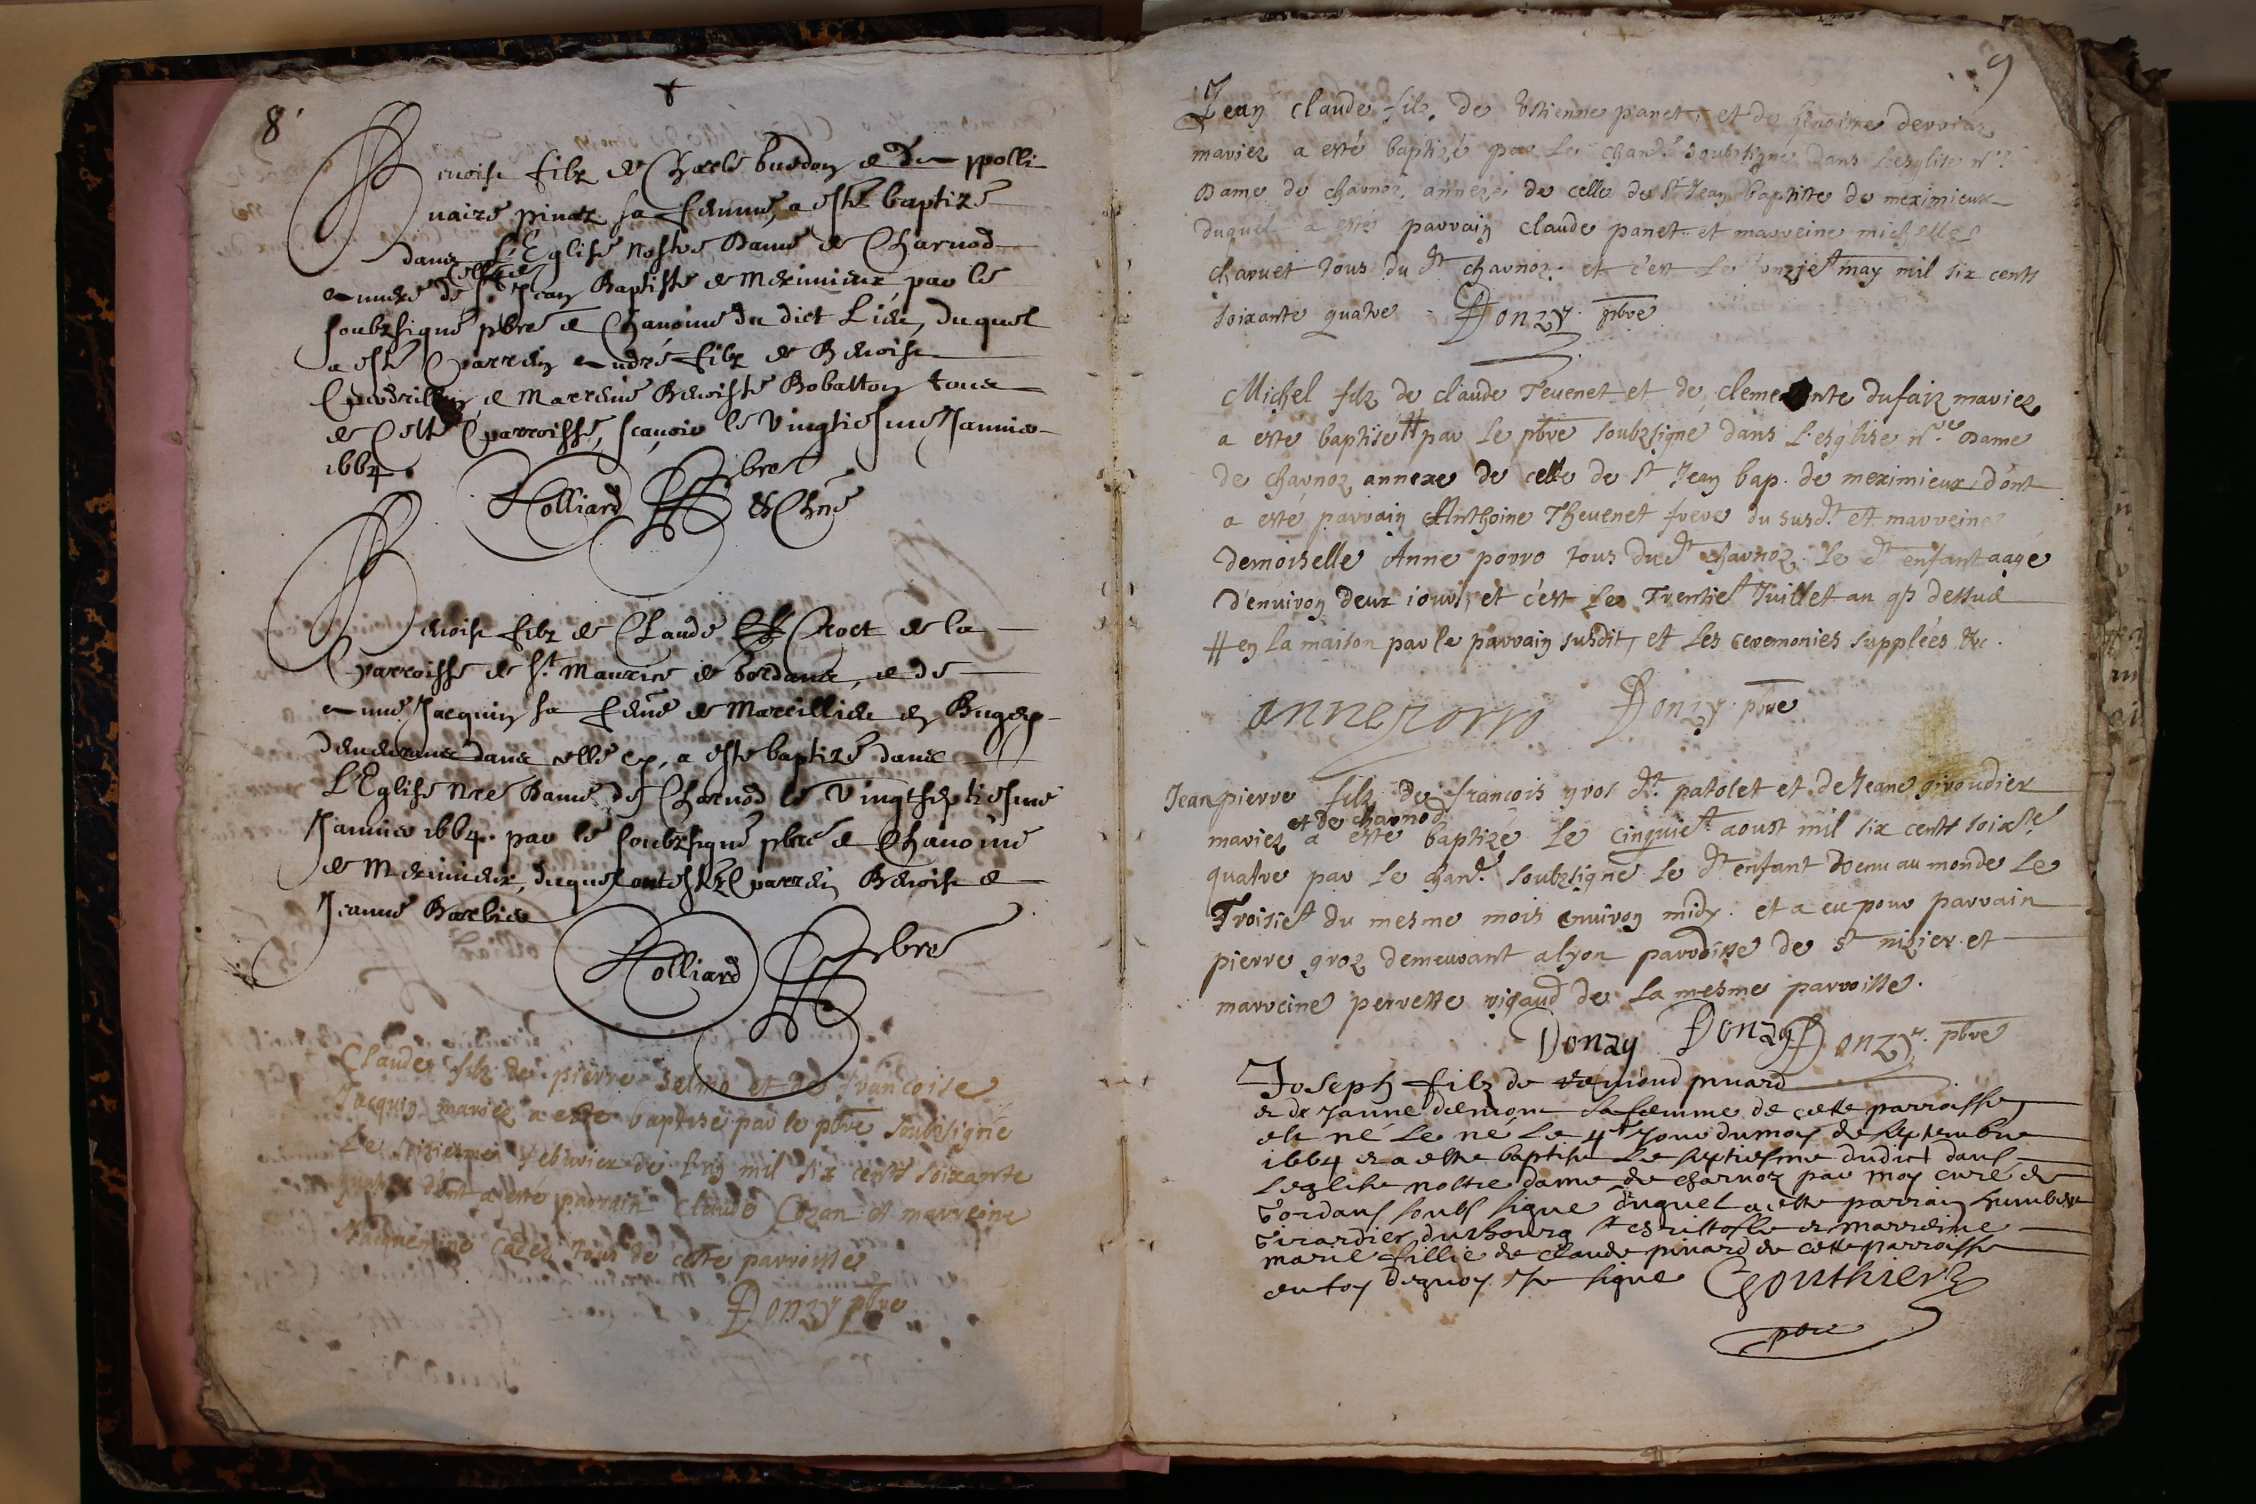 8
Benoist filz de Charle burdon et de ppolli
naire pinar sa femme, a esté baptizé
dans L'Eglise Nostre Dame de Charnod
annexe de celle de St Jean Baptiste de Meximieux par le
soubsigné pbre et Chanoine du dict Lieu, duquel
a esté Parrein André filz de Benoist
et Marreine Benoiste Robatton tous
de Celte Parroisse, scavoir le Vingtiesme Janvier
1664.
Holliard pbre
et Chne
Benoist filz de Claude Croct de la
Parroisse de St. Maurice de bordans, et de
Anne Jacquin sa feme de Marcillieu en Bugey
demeurans dans celle cy, a este baptizé dans
L'Eglise Nre Dame de Charnod le Vingtseptiesme
Janvier 1664. par le soubzsigné pbre et Chanoine
de Meximieux, duquel ont estez Parrein Benoist et
Jeanne Barbier
Holliard pbre
Claude filz de pierre selmo et de francoise
Jacquin mariez a este baptisé par le pbre soubsigné
Le sizieme febvrier de l'an mil six cents soixante
quatre dont a esté parrain Claude Cozan et marreine
Jacquemine tous de cette parroisse
Donzy pbre
9
Jean claude filz de Estienne panet, et de
mariez a esté baptizé par Le chane soubsigné dans L'esglise nre
Dame de charnoz annexe de celle de St Jean baptiste de meximieux
duquel a esté parrain claude panet et marreine michelle
charuet tous du dt charnoz. et c'est Le onzje may mil six cents
soixante quatre Donzy pbre
Michel filz de claude Tevenet et de clemente dufair mariez
a este baptisé # par Le pbre soubzsigné dans L'esglise nre Dame
de charnoz annexe de celle de st Jean bap. de meximieux, dont
a este parrain Anthoine Thevenet frere du susdt et marreine
Demoiselle Anne porro tous dudt charnoz. Le dt enfant aagé
D'environ deux iours, et c'est Le Trentie Juillet an qp dessus
# en La maison par le parrain susdit, et Les ceremonies supplées &c.
anne porro Donzy pbre
Jean pierre filz de francois yvol dt. patolet et de Jeane giroudier
et de charnod
mariez a esté baptizé Le cinquie aoust mil six cents soixte
quatre par Le chane. soubzsigné Le dt enfant venu au monde Le
Troisie du mesme mois environ midy. et a eu pour parrain
pierre groz demeurant a lyon parroisse de st nizier et
marreine pervette rigaud de La mesme parroisse.
Donzy Donzy Donzy. pbre
Joseph filz de remond pinard
et de Janne demon sa femme de cette parroisse
est né Le né Le 4e Jour du moy de septembre
1664 et a este baptise Le septiesme dudict dans
Leglise nostre dame de charnoz par moy curé de
bordans soubs signe duquel a este parrain humbert
girardier du bourg st christofle et marreine
marie fillie de claude pinard de cette parroisse
en foy dequoy Je signe Gouthier
pbre